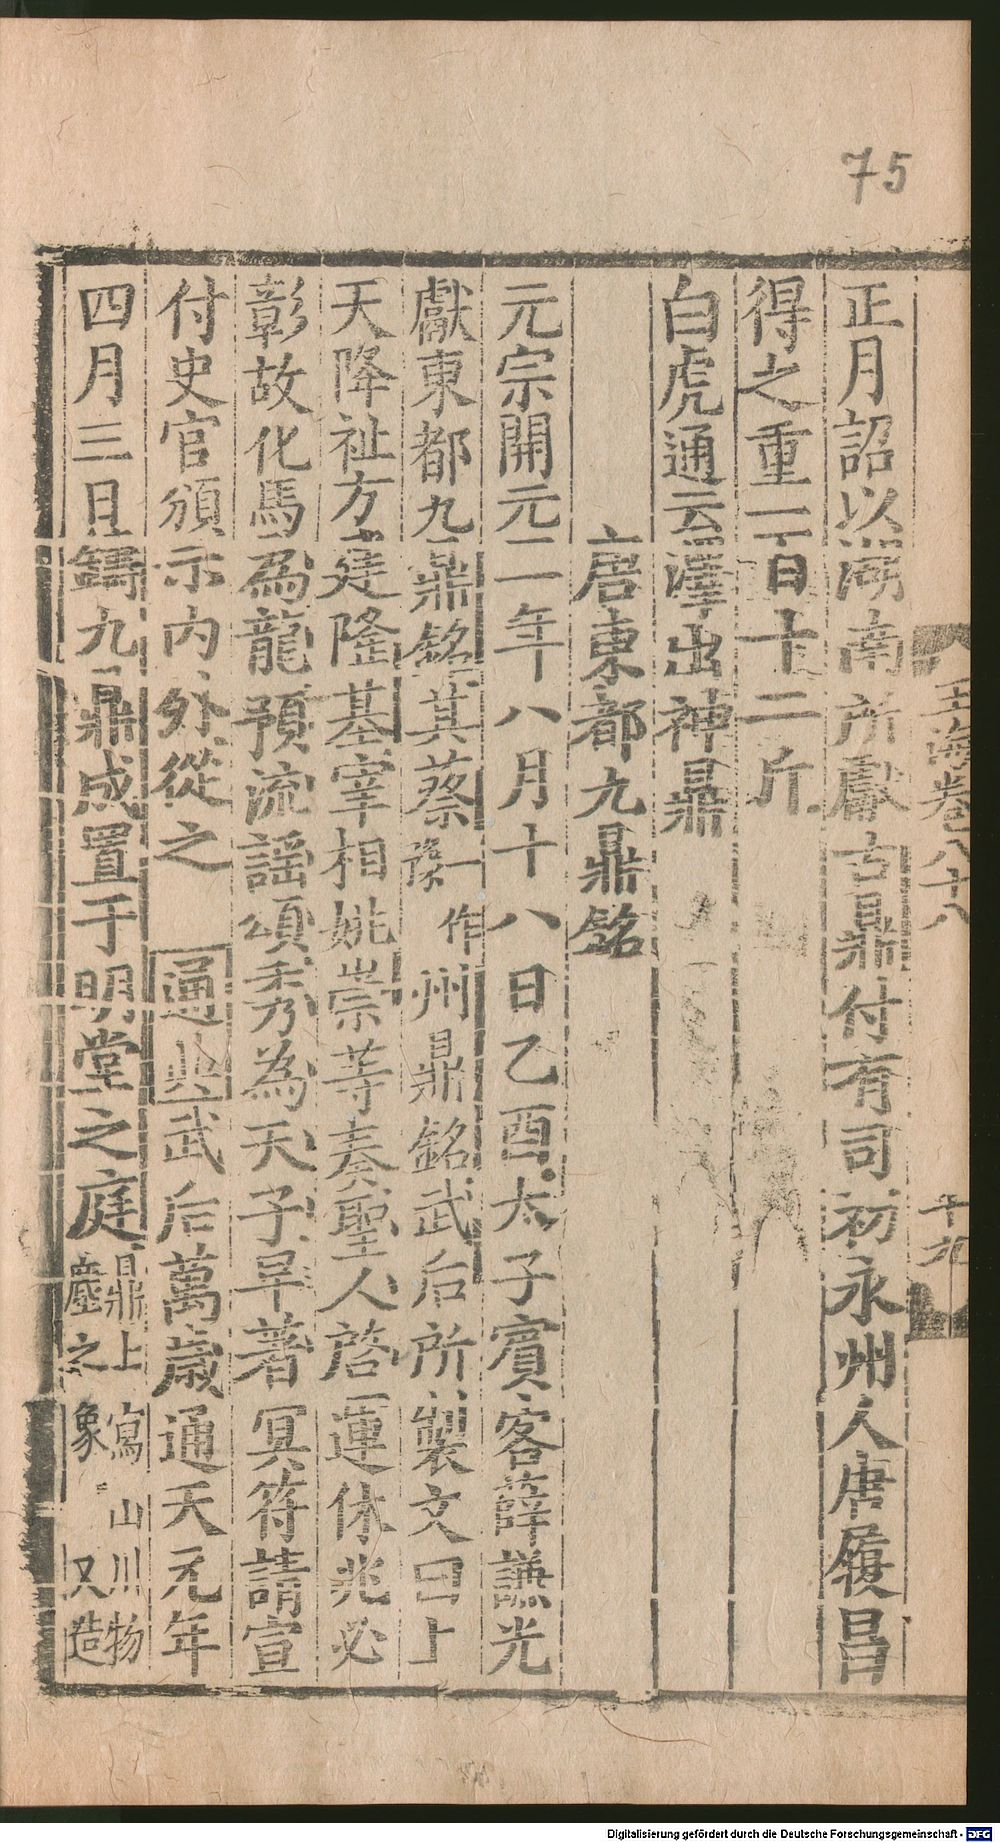 75
玉海卷八十八
十九
正月詔以湖南所獻古鼎付有司初永州人唐履昌
得之重一百十二斤
白虎通云澤出神鼎
唐東都九鼎銘
元宗開元二年八月十八日乙酉太子賓客薛謙光
獻東都九鼎銘其蔡一作豫州鼎銘武后所製文曰上
天降祉方建隆基宰相姚崇等奏聖人啓運休兆必
彰故化馬為龍預流謡頌秀為天子早著冥符請宣
付史官頒示内外從之 通典武后萬歲通天元年
四月三日鑄九鼎成置于明堂之庭鼎上寫山川物產之象又造
Digitalisierung gefördert durch die Deutsche Forschungsgemeinschaft - DFG